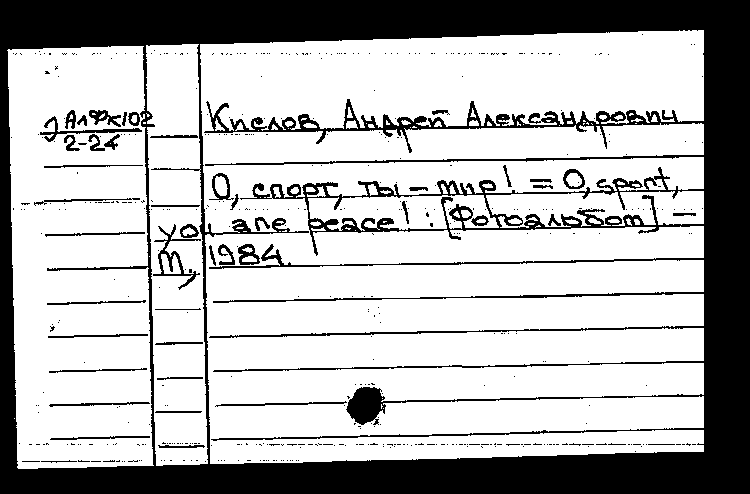 АлФК102
2-24
Кислов, Андрей Александрович
О, спорт, ты - мир! = O, sport,
you are peace! : [Фотоальбом] -
М., 1984.